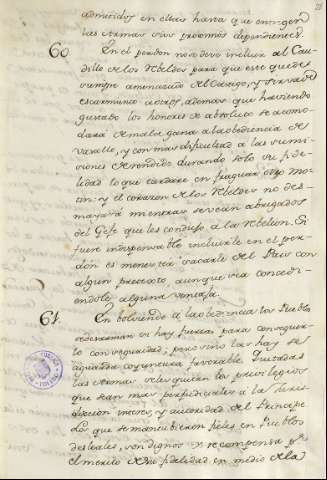 admitidos en ellas hasta que entreguen
las Armas sus proximos dependientes.
60 En el perdon no se deve incluir al Cau-
dillo de los Rebeldes para que este quede
siempre amenazado del Castigo, y sirva de
escarmiento a otros, ademas que haviendo
gustado los honores de absoluto se acomo-
dará de mala gana a la obediencia de
vasallo, y con mas dificultad a las sumi-
siones de rendido durando solo su fide-
lidad lo que tardare en fraguar otro Mo-
tin: y el corazon de los Rebeldes no des-
mayará mientras se vean abrigados
del Gefe que les condujo a la Rebelion. Si
fuere indispensable incluirle en el per-
dón es menester sacarle del Pais con
algun pretexto, aunque sea concedi-
endole alguna ventaja.
61. En bolviendo a la obediencia los Pueblos
se desarman si hay fuerza para conseguir-
lo con seguridad; pero si no la hay se
aguarda coyuntura favorable. Quitadas
las Armas se les quitan los privilegios
que sean mas perjudiciales a la
diccion interes, y autoridad del Principe
Los que se mantubieron fieles en Pueblos
desleales, son dignos de recompensa por
el merito de su fidelidad en medio de la